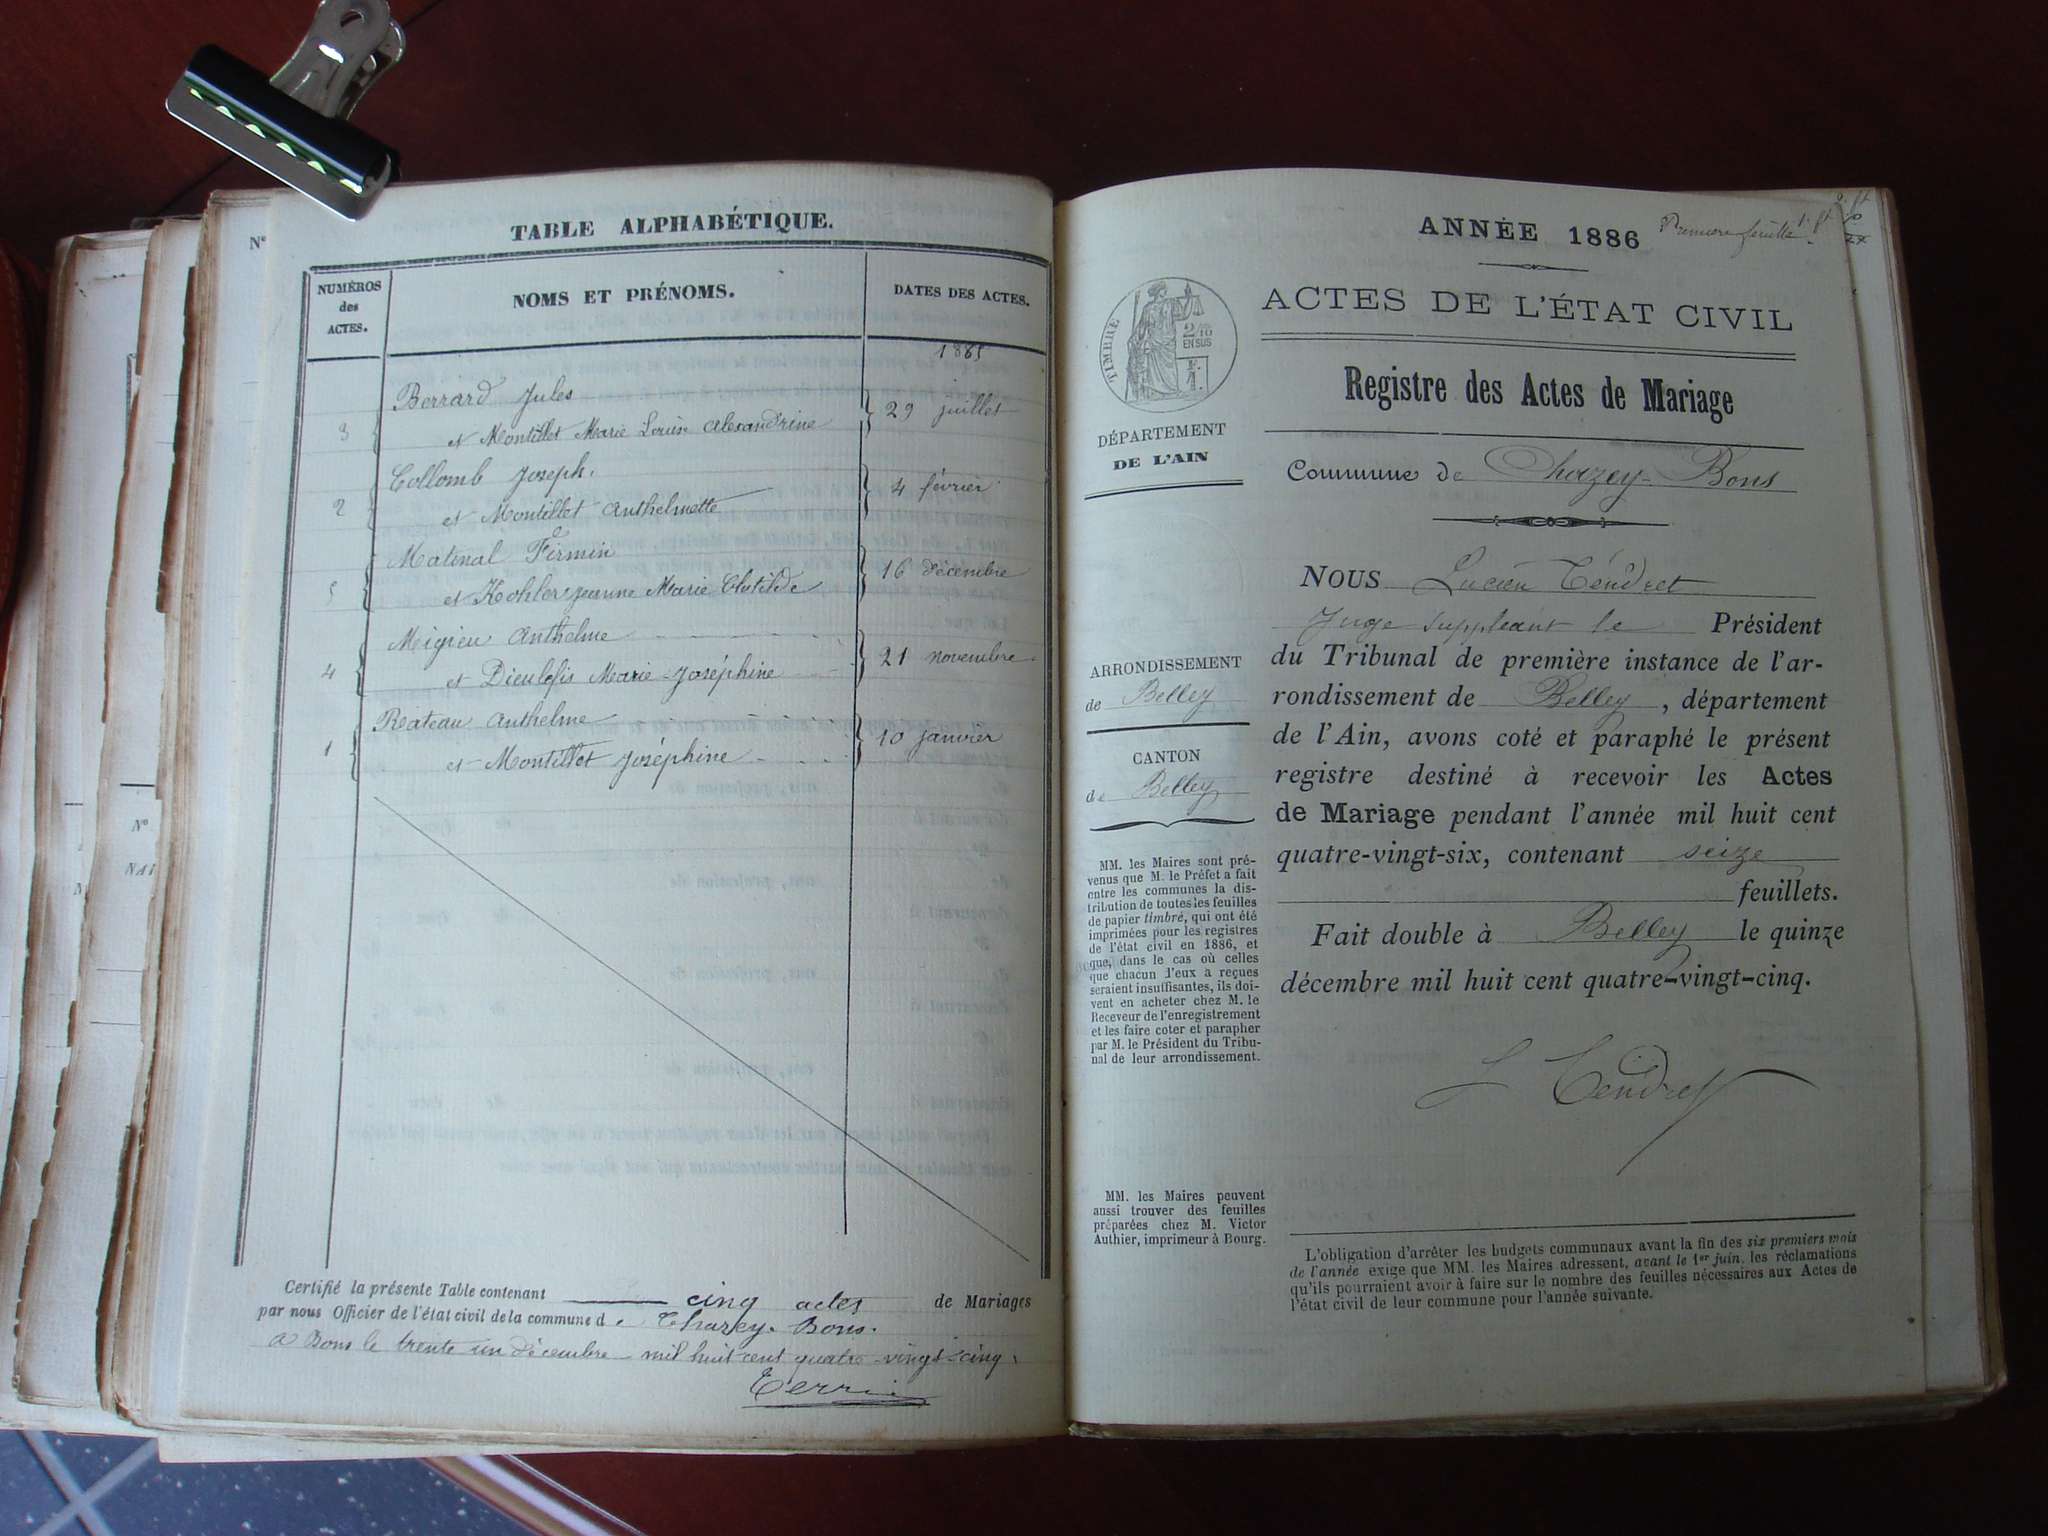 N°
TABLE ALPHABÉTIQUE.
NUMÉROS
des
ACTES.
NOMS ET PRÉNOMS.
DATES DES ACTES.
1885
Berrard Jules
3 et Montillet Marie Louise Alexandrine 29 juillet
Collomb Joseph.
2 et Montillet Anthelmette 4 février
Matinal Firmin
5 et Kohler Jeanne Marie Clotilde 16 décembre
Migieu Anthelme
4 et Dieulefis Marie-Joséphine 21 novembre
Rateau Anthelme
1 et Montillet Joséphine 10 janvier
Certifié la présente Table contenant cinq actes de Mariages
par nous Officier de l'état civil de la commune de Chazey-Bons.
a Bons le trente un décembre mil huit cent quatre-vingt-cinq.
N°
ANNÉE 1886
Première feuille
TIMBRE
2/10
EN SUS
ACTES DE L'ÉTAT CIVIL
Registre des Actes de Mariage
DÉPARTEMENT
DE L'AIN
Commune de Chazey-Bons
NOUS Lucien Tendret
Juge suppléant le Président
du Tribunal de première instance de l'ar-
rondissement de Belley, département
de l'Ain, avons coté et paraphé le présent
registre destiné à recevoir les Actes
de Mariage pendant l'année mil huit cent
quatre-vingt-six, contenant seize
feuillets.
Fait double à Belley le quinze
décembre mil huit cent quatre-vingt-cinq.
L Tendret
ARRONDISSEMENT
de Belley
CANTON
de Belley
MM. les Maires sont pré-
venus que M. le Préfet a fait
entre les communes la dis-
tribution de toutes les feuilles
de papier timbré, qui ont été
imprimées pour les registres
de l'état civil en 1886, et
que, dans le cas où celles
que chacun d'eux a reçues
seraient insuffisantes, ils doi-
vent en acheter chez M. le
Receveur de l'enregistrement
et les faire coter et parapher
par M. le Président du Tribu-
nal de leur arrondissement.
MM. les Maires peuvent
aussi trouver des feuilles
préparées chez M. Victor
Authier, imprimeur à Bourg.
L'obligation d'arrêter les budgets communaux avant la fin des six premiers mois
de l'année exige que MM. les Maires adressent, avant le 1er juin, les réclamations
qu'ils pourraient avoir à faire sur le nombre des feuilles nécessaires aux Actes de
l'état civil de leur commune pour l'année suivante.